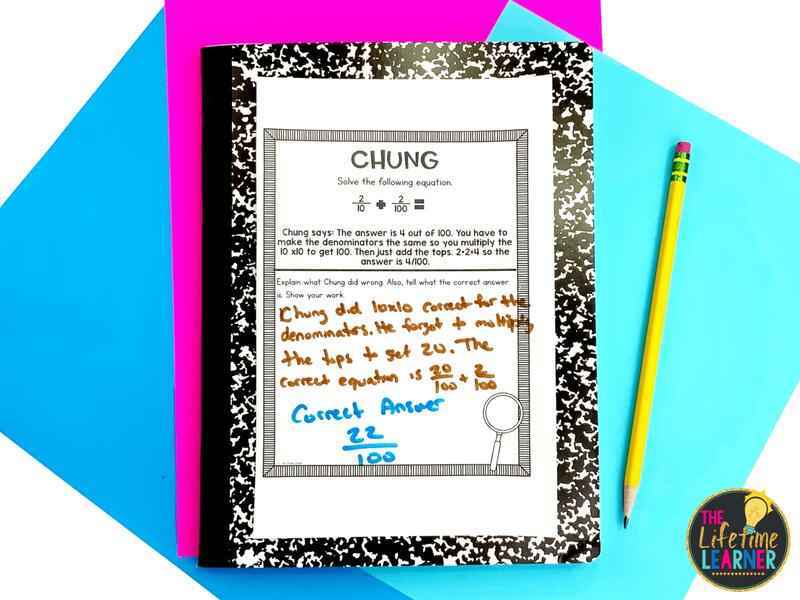 CHUNG
Solve the following equation.
2/10 + 2/100 =
Chung says: The answer is 4 out of 100. You have to
make the denominators the same so you multiply the
10 x10 to get 100. Then just add the tops. 2+2=4 so the
answer is 4/100.
Explain what Chung did wrong. Also, tell what the correct answer
is. Show your work.
Chung did 10x10 correct for the
denominators. He forgot to multiply
the tops to get 20. The
correct equation is 20/100 + 2/100
Correct Answer
22/100
THE
Lifetime
LEARNER